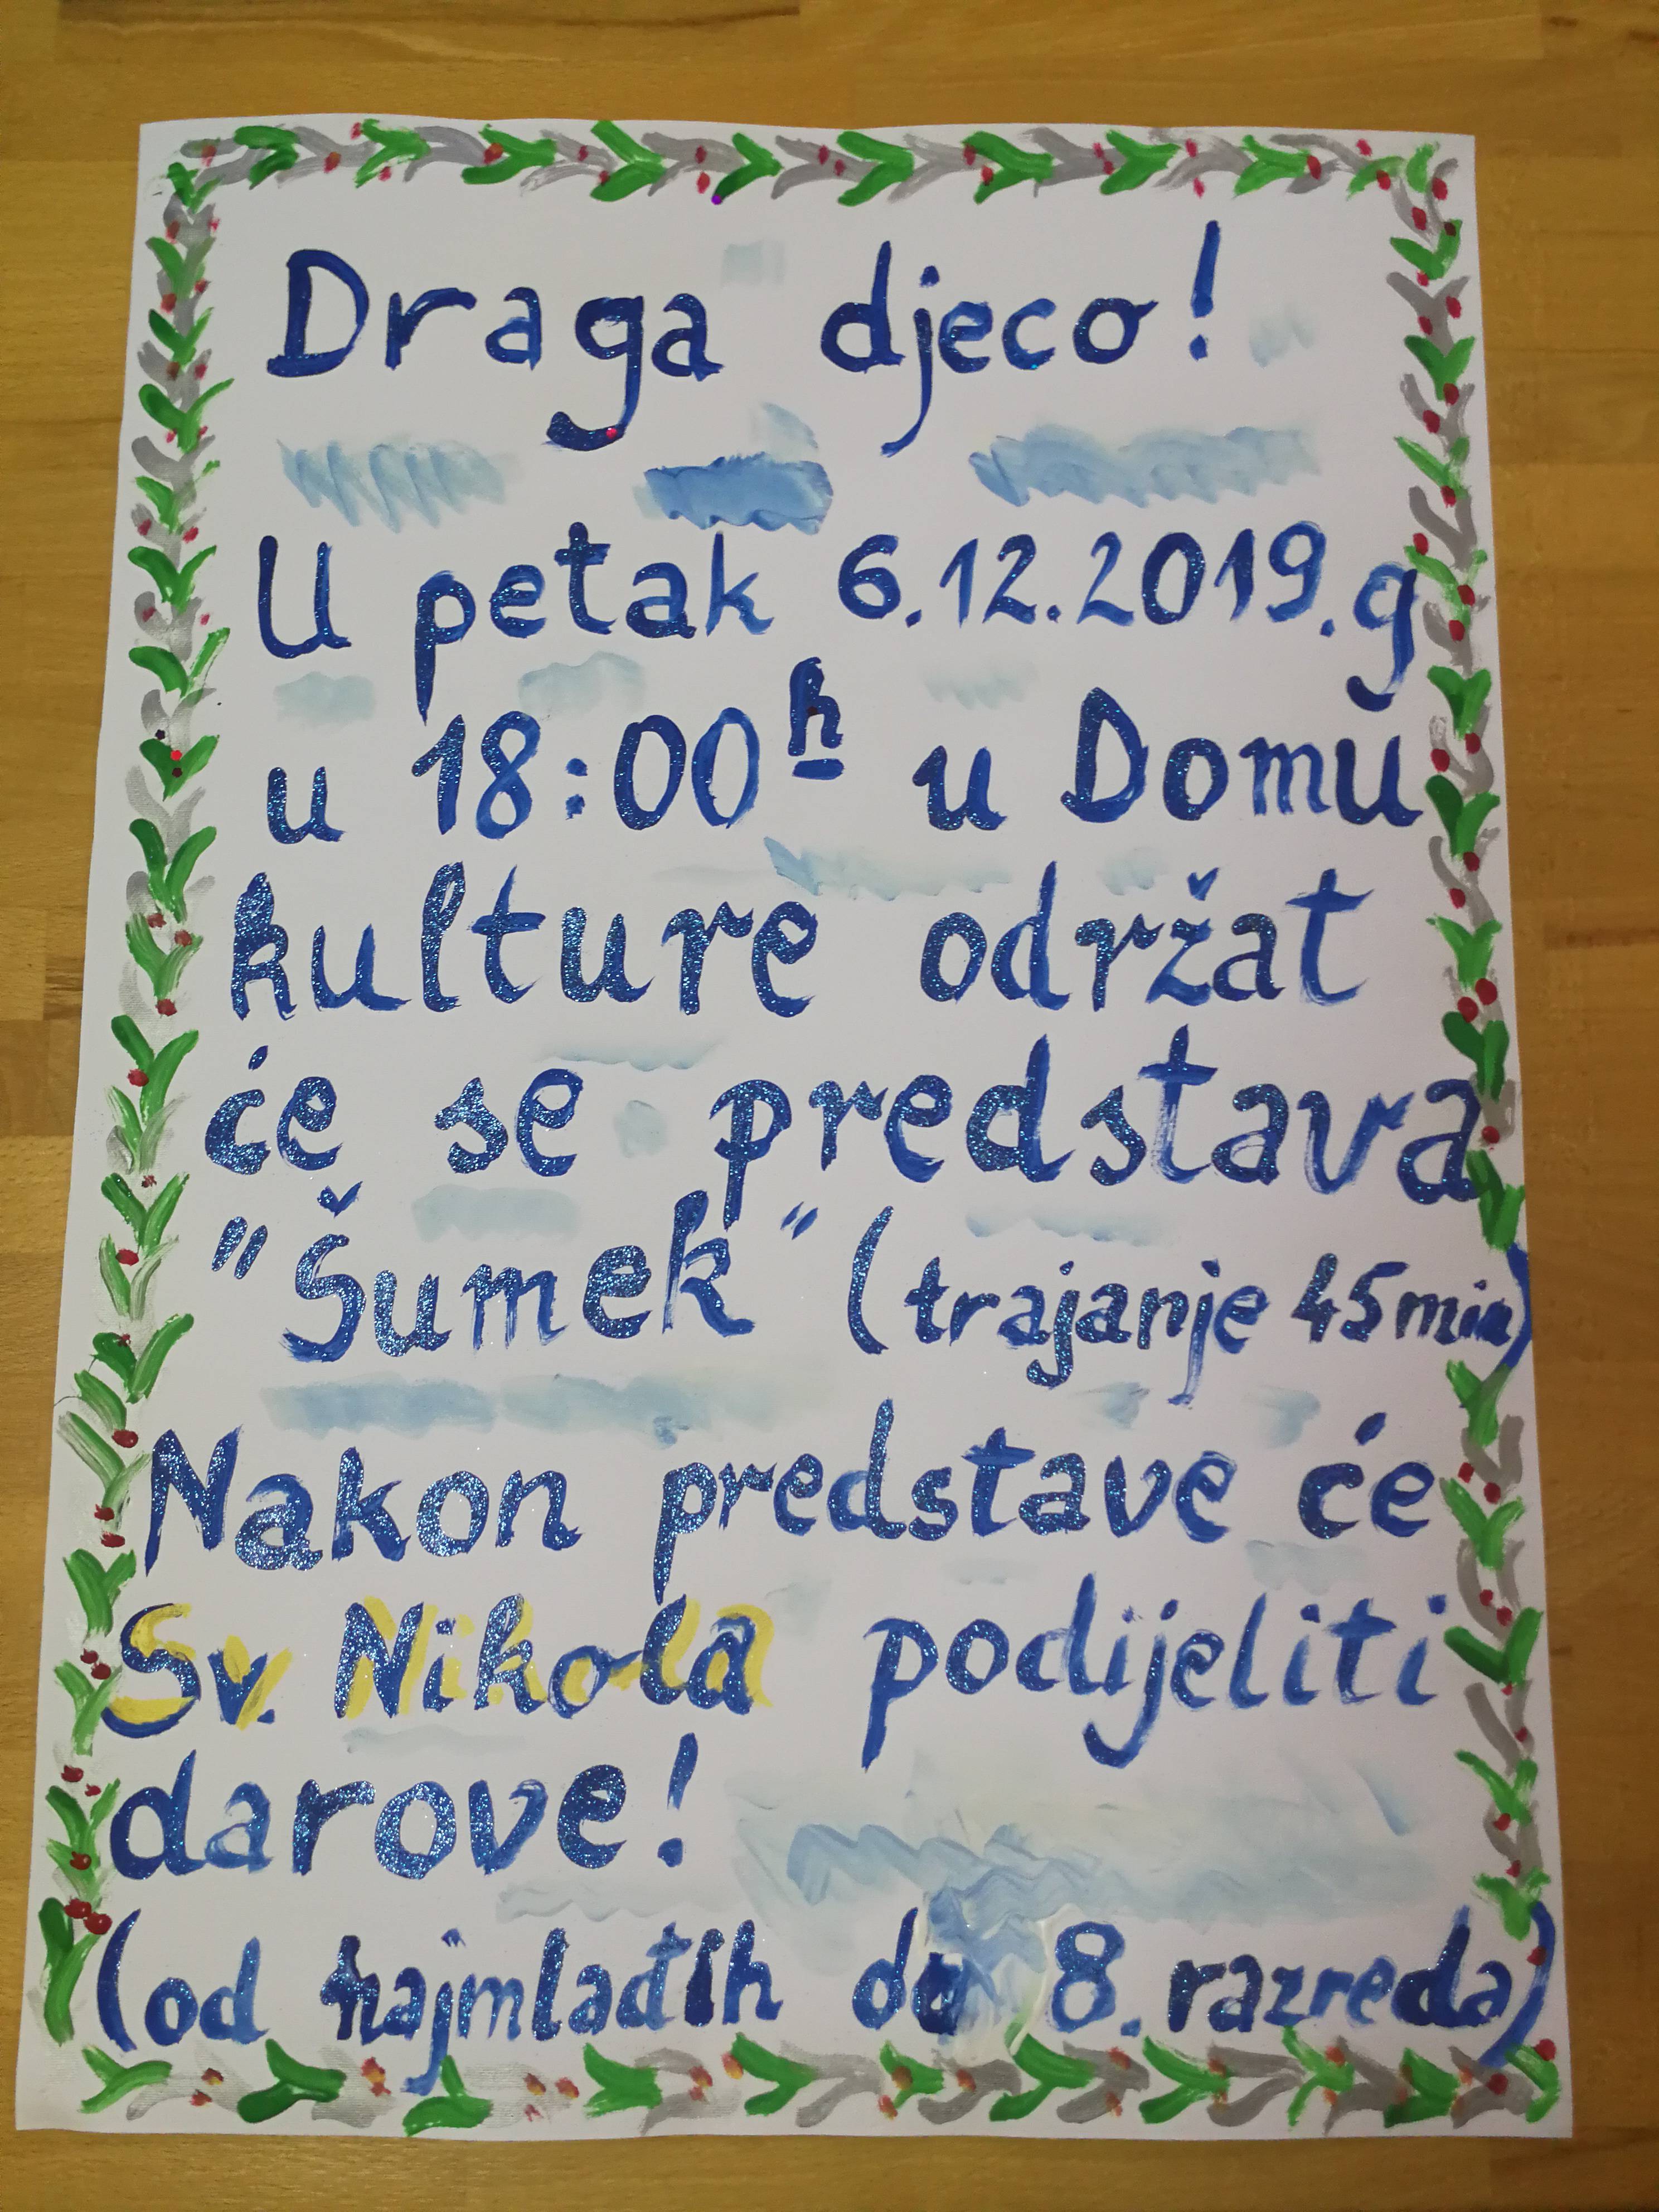 Draga djeco!
U petak 6.12.2019.g
u 18:00h u Domu
kulture održat
će se predstava
"Šumek" (trajanje 45min)
Nakon predstave će
Sv. Nikola podijeliti
darove!
(od najmlađih do 8. razreda)